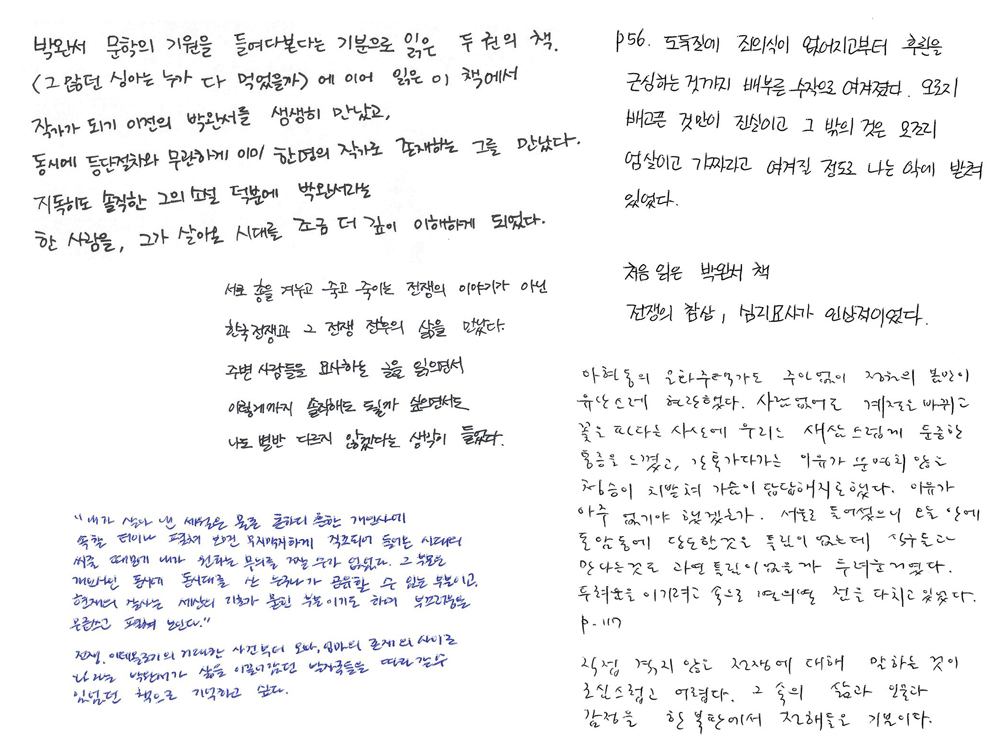 박완서 문학의 기원을 들여다본다는 기분으로 읽은 두 권의 책.
(그 많던 싱아는 누가 다 먹었을까)에 이어 읽은 이 책에서
작가가 되기 이전의 박완서를 생생히 만났고,
동시에 등단절차와 무관하게 이미 한명의 작가로 존재하는 그를 만났다.
지독히도 솔직한 그의 소설 덕분에 박완서라는
한 사람을, 그가 살아온 시대를 조금 더 깊이 이해하게 되었다.
서로 총을 겨누고 죽고 죽이는 전쟁의 이야기가 아닌
한국전쟁과 그 전쟁 전후의 삶을 만났다.
주변 사람들을 묘사하는 글을 읽으면서
이렇게까지 솔직해도 될까 싶으면서도
나도 별반 다르지 않겠다는 생각이 들었다.
"내가 살아 낸 세월은 물론 흔하디 흔한 개인사에
속할 터이나 펼쳐 보면 무지막지하게 직조되어 들어온 시대의
씨줄 때문에 내가 원하는 무늬를 짤 수가 없었다. 그 부분은
개인사인 동시에 동시대를 산 누구나가 공유할 수 있는 부분이고,
현재의 잘사는 세상의 기초가 묻힌 부분이기도 하여 부끄러움을
무릅쓰고 펼쳐 보인다."
전쟁, 이데올로기의 거대한 사건부터 오빠, 엄마의 존재의 사이로
나라는 박완서가 삶을 이끌어갔던 발자국들을 따라갈 수
있었던 책으로 기억하고 싶다.
p56. 도둑질에 죄의식이 없어지고부터 후환을
근심하는 것까지 배부른 수작으로 여겨졌다. 오로지
배고픈 것만이 진실이고 그 밖의 것은 모조리
엄살이고 가짜라고 여겨질 정도로 나는 악에 받쳐
있었다.
처음 읽은 박완서 책
전쟁의 참상, 심리묘사가 인상적이었다.
아현동의 온화주택가도 주인없이 정원의 봄만이
유난스레 현란했다. 사람없어도 계절은 바뀌고
꽃은 핀다는 사실에 우리는 새삼스럽게 둔중한
통증을 느꼈고, 간혹가다가는 이유가 분명치 않은
청승이 치받쳐 가슴이 답답해지곤했다. 이유가
아주 없기야 했겠는가. 서울로 들어섰으니 오늘 안에
돈암동에 당도한것은 틀림이 없는데 식구들과
만나는것도 과연 틀림이 없을까 두려운거였다.
두려움을 이기려고 속으로 열의열 전을 다치고 있었다.
p.117
직접 겪지 않은 전쟁에 대해 말하는 것이
조심스럽고 어렵다. 그 속의 삶과 인물과
감정을 한복판에서 전해들은 기분이다.